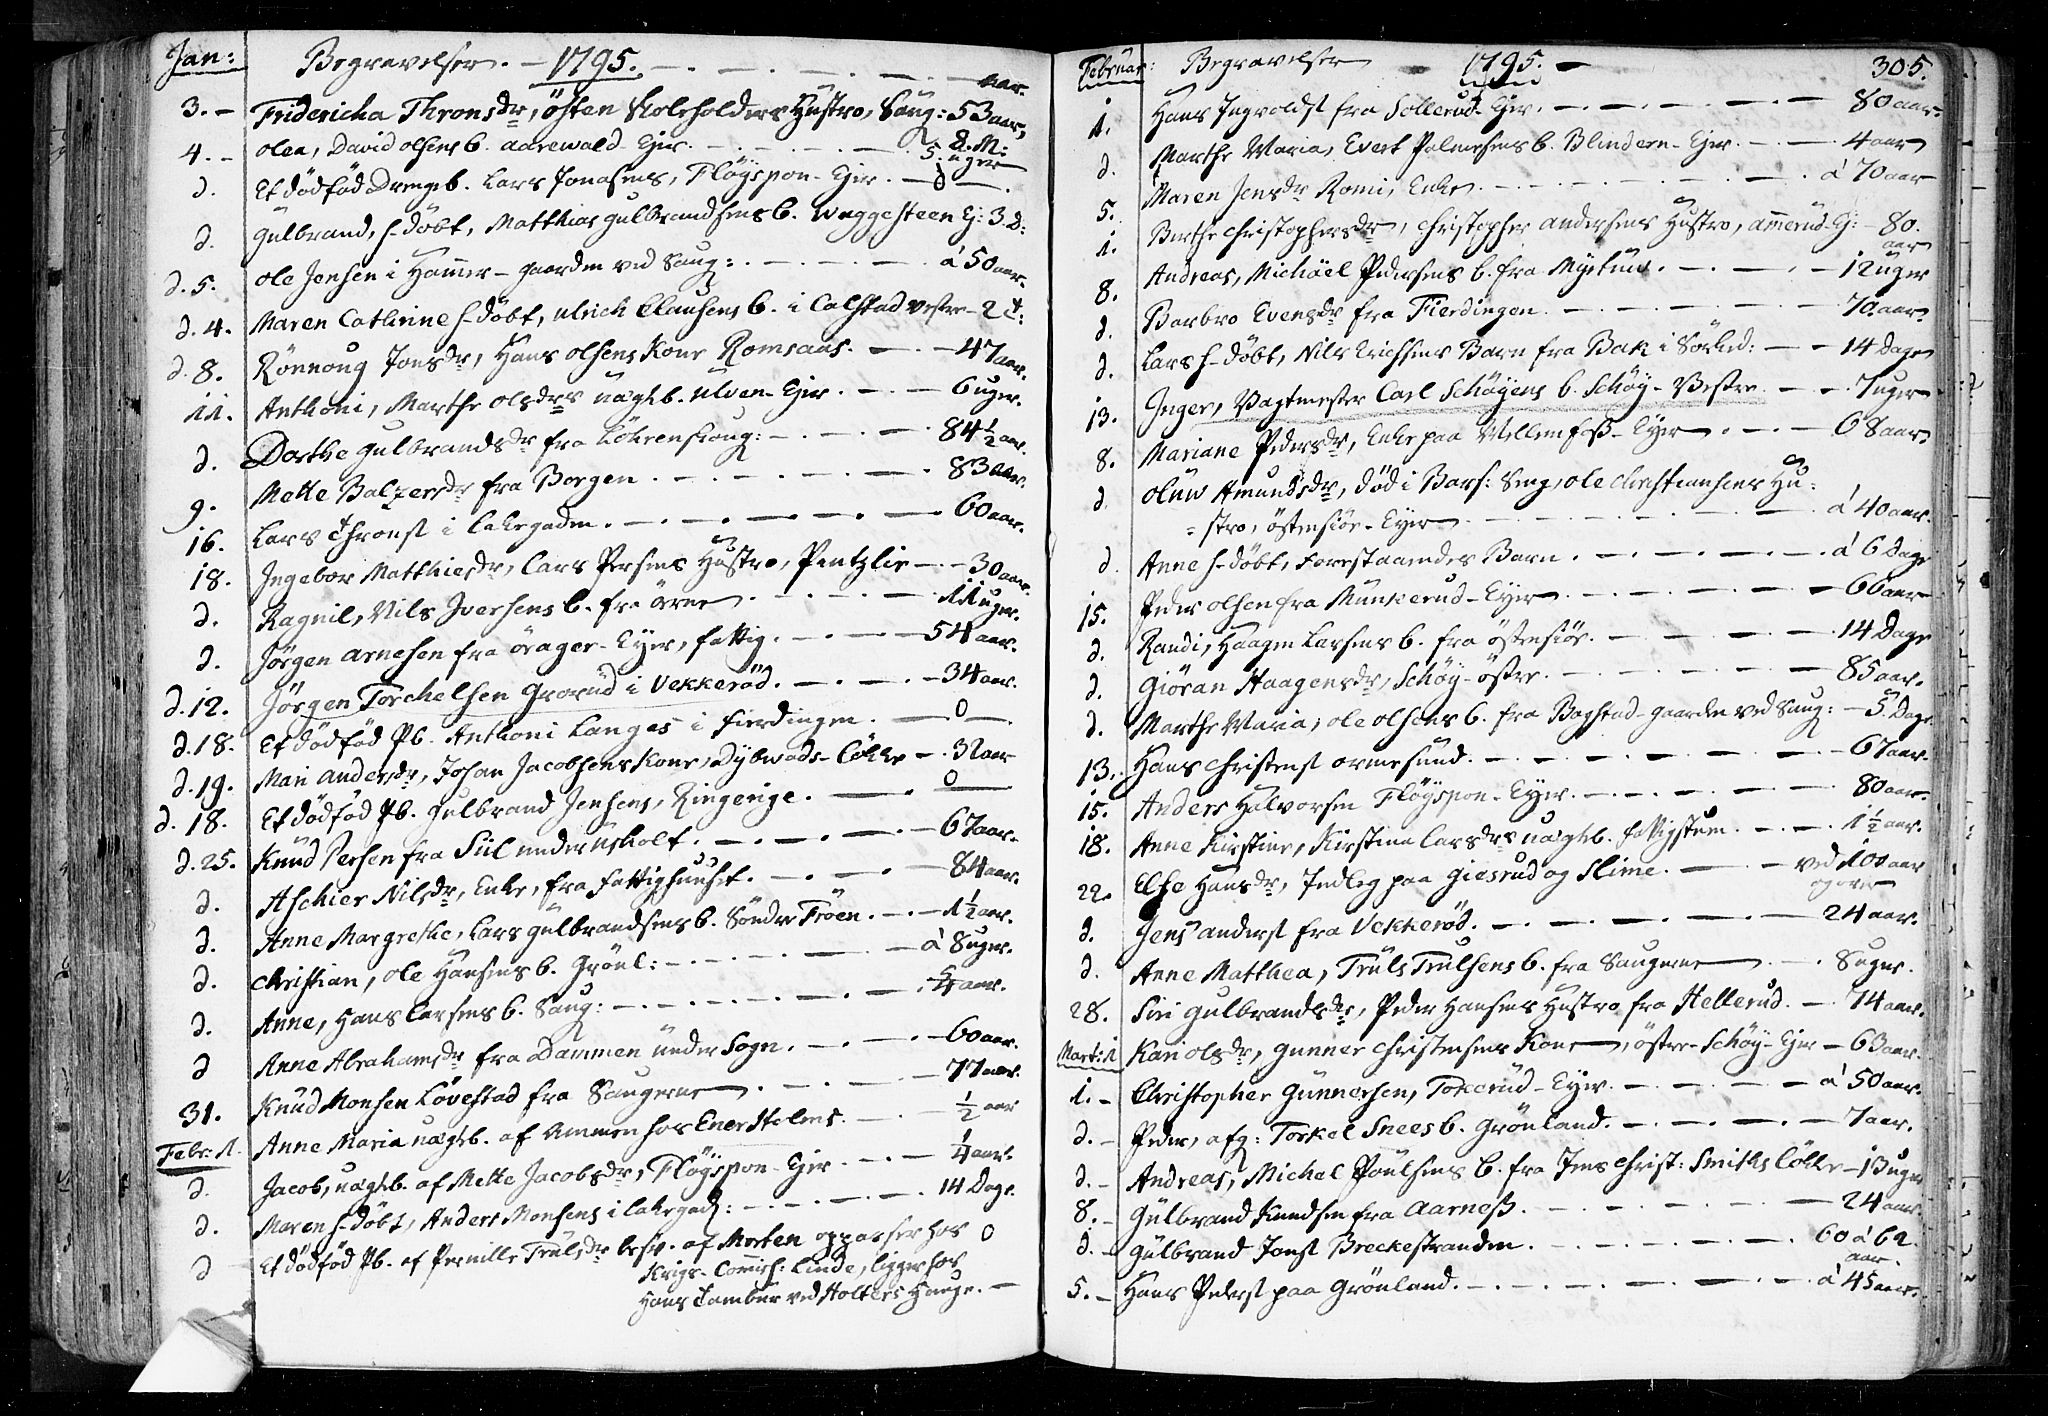 Jan: Begravelser. 1795.
aar.
3. Fridericha Thronsdr, østen Skoleholders Hustro, Saug: 53 aar,
8. M:
4. Olea, David olsens b. aarewald-Ejer. 5. uger
d. Et dødfød Drengeb. Lars Jonasens, Fløyspon-Ejer. 0
d. Gulbrand, h-døbt, Matthias gulbrandsens b. Waggesteen Ej: 3. D:
d. 5. ole Jensen i Hammer-gaarden ved Saug: á 50 aar.
d. 4. Maren Cathrine h-døbt, ulrich Clausens b. i Calstad vestre 2 t:
d. 8. Rønnoug Jonsdr, Hans olsens Kone Romsaas. 47 aar.
11. Anthoni, Marthe olsdrs uægtb. ulven-Ejer. 6 uger.
d. Dorthe gulbrandsdr fra Løkenskoug: 84 1/2 aar.
9. Mette Balzersdr fra Borgen. 83 aar.
16. Lars Thronsl i Lakegaden. 60 aar.
18. Ingebor Matthiesdr, Lars Persens Hustro, Pentzlie 30 aar.
d. Ragnil, Nils Iversens b. fra ørne 11 uger.
d. Jørgen arnesen fra ørager-Eyer, fattig. 54 aar.
d. 12. Jørgen Torchelsen Grorud i Vekkerød. 34 aar.
d. 18. Et dødfød Pb. Anthoni Langes i fierdingen. 0
d. 19. Mari andersdr, Johan Jacobsens Kone, Dybwads-Løkke 32 aar
d. 18. Et dødfød Pb. Gulbrand Jensens, Ringerige. 0
d. 25. Knud Persen fra Siil under uskolt. 67 aar.
d. Aschier Nilsdr, Enke, fra fattighuuset. 84 aar.
d. Anne Margrethe, Lars gulbrandsens b. Søndre Frøen. 1 1/2 aar.
d. Christian, ole Hansens b. Grønl: á 8 uger.
d. Anne, Hans Larsens b. Saug: 5/4 aar.
d Anne Abrahamsdr fra Dammen under Sogn. 60 aar.
31. Knud Monsen Løvestad fra Saugerne 77 aar.
Febr: 1. Anne Maria uægtb. af Ammen hos Ener Holms. 1/2 aar
d. Jacob, uægtb. af Mette Jacobsdr, Fløyspon-Ejer 1/4 aar.
d. Maren h-døbt, Anders Monsens i Lakegad: 14 Dage.
d Et dødfød Pb. af Pernille Trulsdr besv. af Morten oppasser hos 0
Krigs-Commiss: Linde, ligger hos
Hans Tambur ved Holters Hauge.
Februar: Begravelser 1795. 305.
1. Hans Ingvoldsl fra Sollerud-Ejer. 80 aar.
d. Marthe Maria, Evert Palmesens b. Blindern-Ejer. 4 aar
5. Maren Jensdr Romi, Enke. á 70 aar
1. Berthe Christophersdr, Christopher andersens Hustro, ammerud-Ej: 80. aar
8. Andreas, Michäel Pedersens b. fra Myrlund. 12 uger
d. Barbro Evensdr fra Fierdingen. 70 aar.
d. Lars h-døbt, Nils Erichsens Barn fra Bak i Sørked: 14 Dage
13. Inger, Vagtmester Carl Schøyens b. Schøy-Vestre 7 uger
8. Mariane Pedersdr, Enke paa Mellemfoss-Eyer 68 aar
d. Oluw Amundsdr, død i Bars: Seng, ole Christiansens Hu:
stro, østensiøe-Eyer á 40 aar.
d. Anne h-døbt, Forestaaendes Barn. á 6 Dage
15. Peder olsen fra Munkerud-Eyer 66 aar
d. Randi, Haagen Larsens b. fra østensiøe. 14 Dage
d. Giøran Haagensdr, Schøy-østre. 85 aar.
d. Marthe Maria, ole olsens b. fra Bogstad-gaarden ved Saug: 5. Dage.
13. Hans Christensl ormesund. 67 aar.
15. Anders Halvorsen Fløyspon-Eyer. 80 aar.
18. Anne Kirstine, Kirstine Larsdrs uægtb. fattigstuen. 1 1/2 aar.
22. Else Hansdr, Indleg paa Giesrud og Slime. ved 100 aar
og over
d. Jens andersl fra Vekkerød. 24 aar.
d. Anne Matthea, Truls Trulsens b. fra Saugerne 8 uger.
28. Siri gulbrandsdr, Peder Hansens Hustro fra Hellerud. 74 aar.
Mart: 1 Kari olsdr, Gunner Christensens Kone, østre-Schøy-Ejer 63 aar.
1. Christopher Gunnersen, Tokerud-Eyer. á 50 aar.
d. Peder, afg: Torkel Snees b. Grønland. 7 aar.
d. Andreas, Michel Poulsens b. fra Jens Christ: Smiths Løkke 13 uger
8. Gulbrand Knudsen fra Aarness. 24 aar.
d. Gulbrand Jonsl Breckestranden. 60 á 62.
aar.
5. Hans Pedersl paa Grønland. á 45 aar.